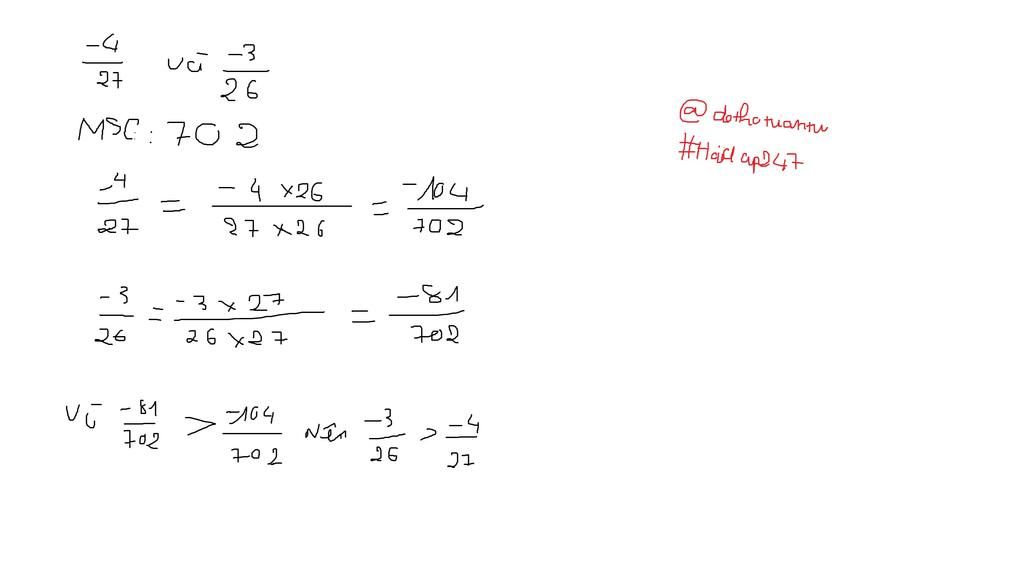 -4/27 và -3/26
MSC: 702
-4/27 = -4 × 26 / 27 × 26 = -104/702
-3/26 = -3 × 27 / 26 × 27 = -81/702
Vì -81/702 > -104/702 nên -3/26 > -4/27
@dothotuantu
#Hoidap247